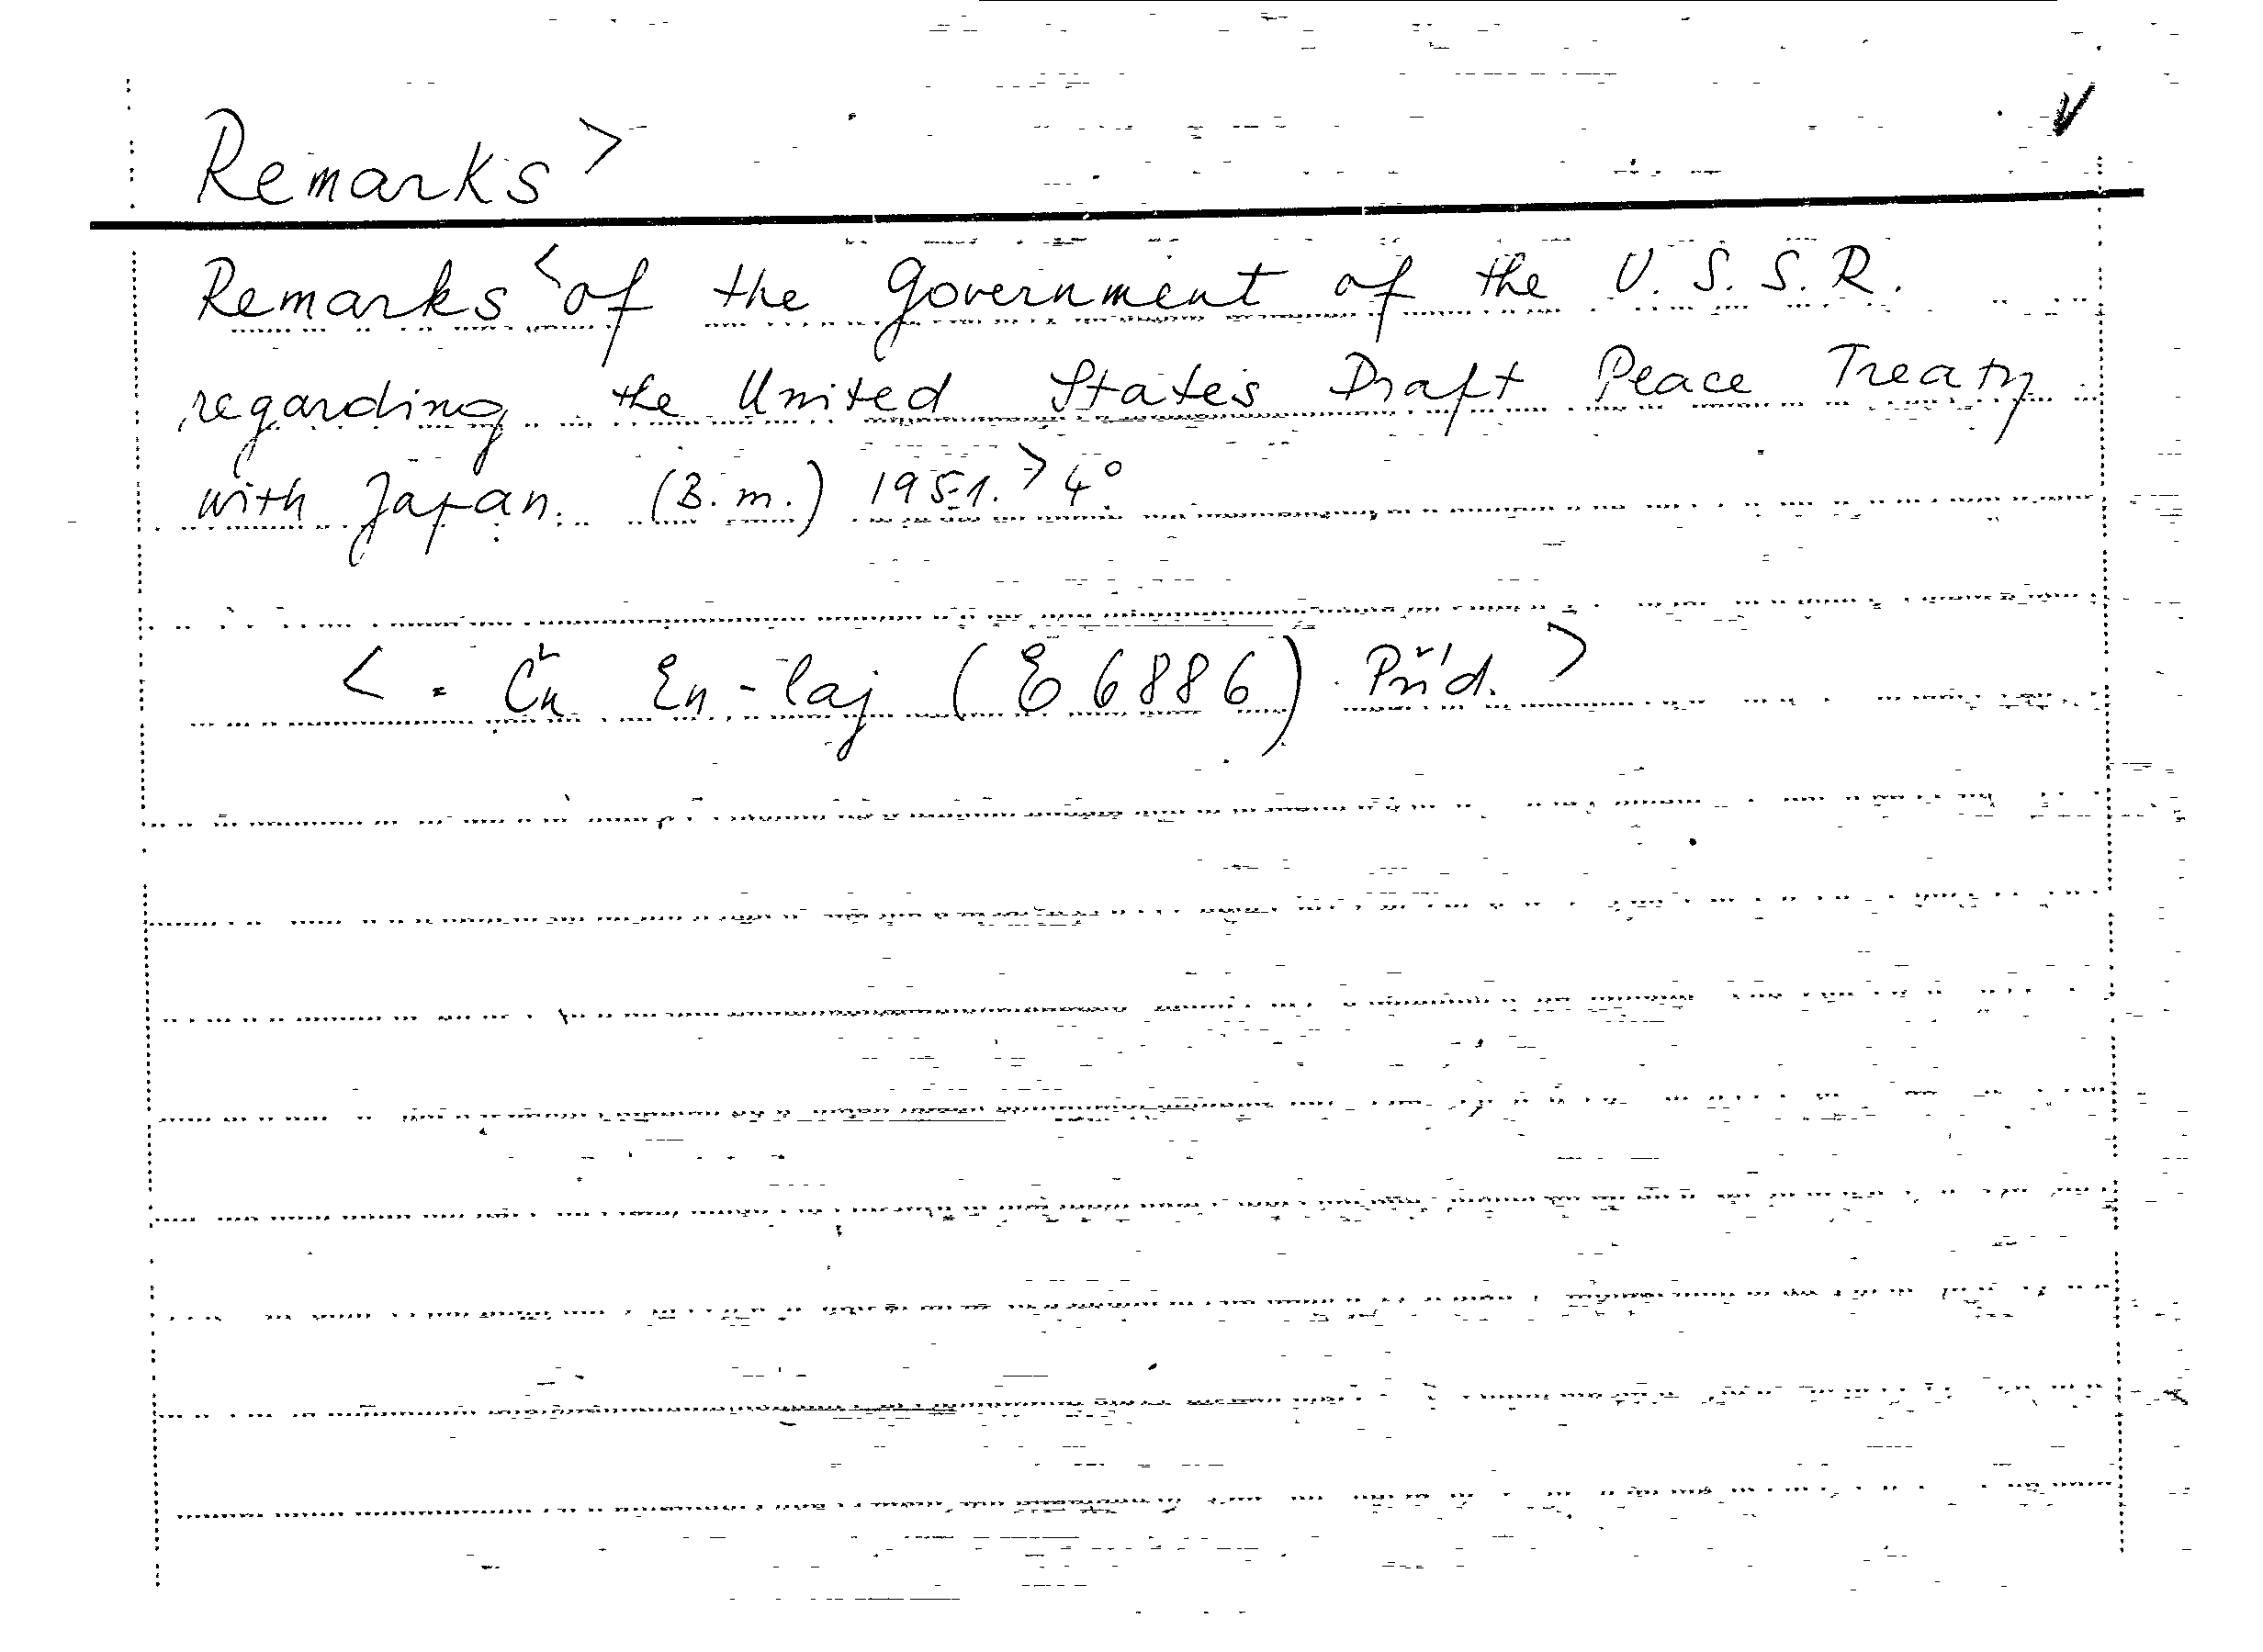 Remarks >
Remarks < of the Government of the U.S.S.R.
regarding the United States Draft Peace Treaty
with Japan. (B.m.) 1951. > 4°
< = Ču En-laj (E 6886) Příd. >